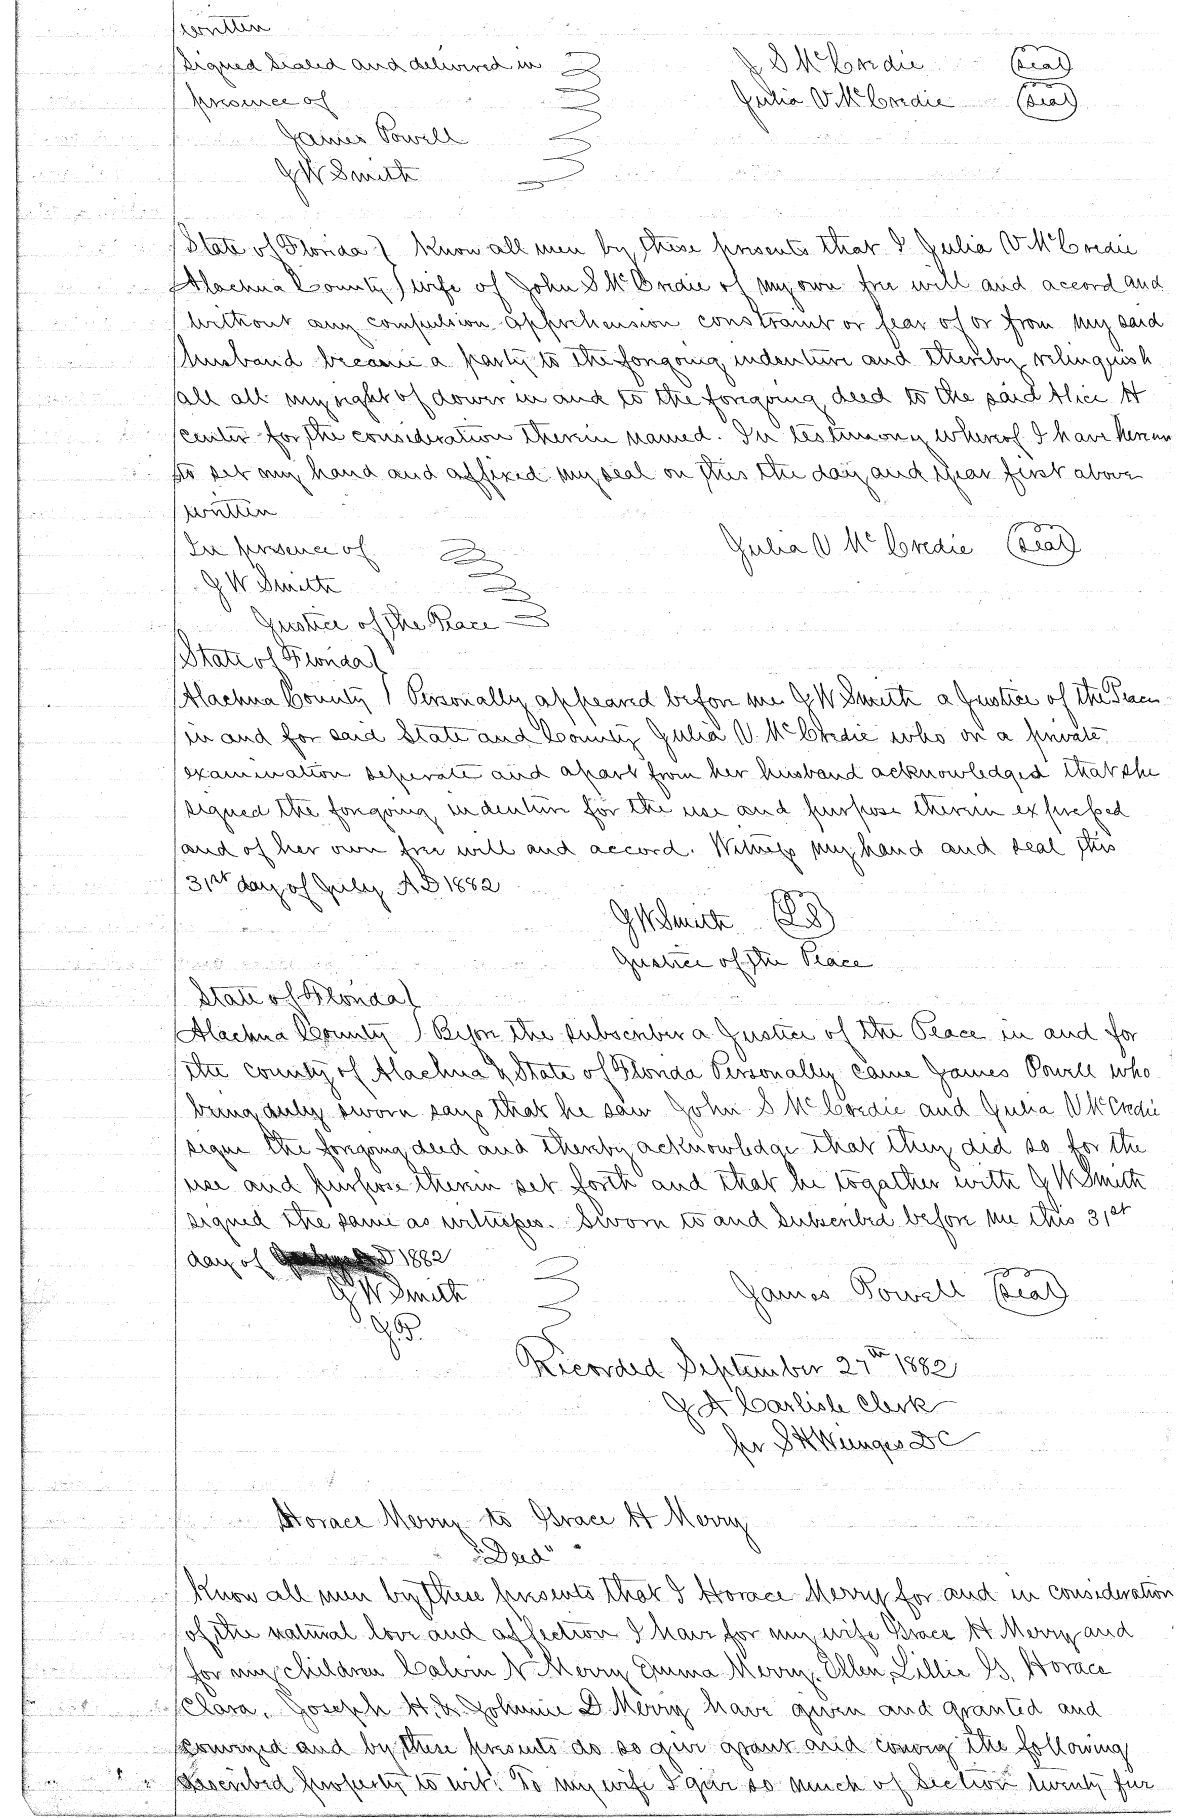 written
Signed Sealed and delivered in J S McCredie (Seal)
presence of Julia V McCredie (Seal)
James Powell
G W Smith
State of Florida } Know all men by these presents that I Julia V McCredie
Alachua County } wife of John S McCredie of my own free will and accord and
without any compulsion apprehension constraint or fear of or from my said
husband became a party to the forgoing indenture and thereby relinquish
all all my right of dower in and to the foregoing deed to the said Alice H
Center for the consideration therein named. In testimony whereof I have hereun
to set my hand and affixed my seal on this the day and year first above
written
In presence of Julia V McCredie (Seal)
G W Smith
Justice of the Peace
State of Florida }
Alachua County } Personally appeared before me G W Smith a Justice of the Peace
in and for said State and County Julia V. McCredie who on a private
examination seperate and apart from her husband acknowledged that she
signed the forgoing indenture for the use and purpose therein expressed
and of her own free will and accord. Witness my hand and seal this
31st day of July A D 1882
G W Smith (LS)
Justice of the Peace
State of Florida }
Alachua County } Before the subscriber a Justice of the Peace in and for
the county of Alachua & State of Florida Personally came James Powell who
being duly sworn says that he saw John S McCredie and Julia V McCredie
sign the forgoing deed and thereby acknowledge that they did so for the
use and purpose therein set forth and that he togather with G W Smith
signed the same as witnesses. Sworn to and Subscribed before me this 31st
day of D 1882
G W Smith James Powell (Seal)
J.P.
Recorded September 27th 1882
J A Carlisle Clerk
per S H Wienges DC
Horace Merry to Grace H Merry
"Deed"
Know all men by these presents that I Horace Merry for and in consideration
of the natural love and affection I have for my wife Grace H Merry and
for my children Calvin N Merry Emma Merry, Ellen, Lillie G, Horace
Clara, Joseph H. & Johnnie D Merry have given and granted and
conveyed and by these presents do so give grant and convey the following
described property to wit: To my wife I give so much of Section twenty fur